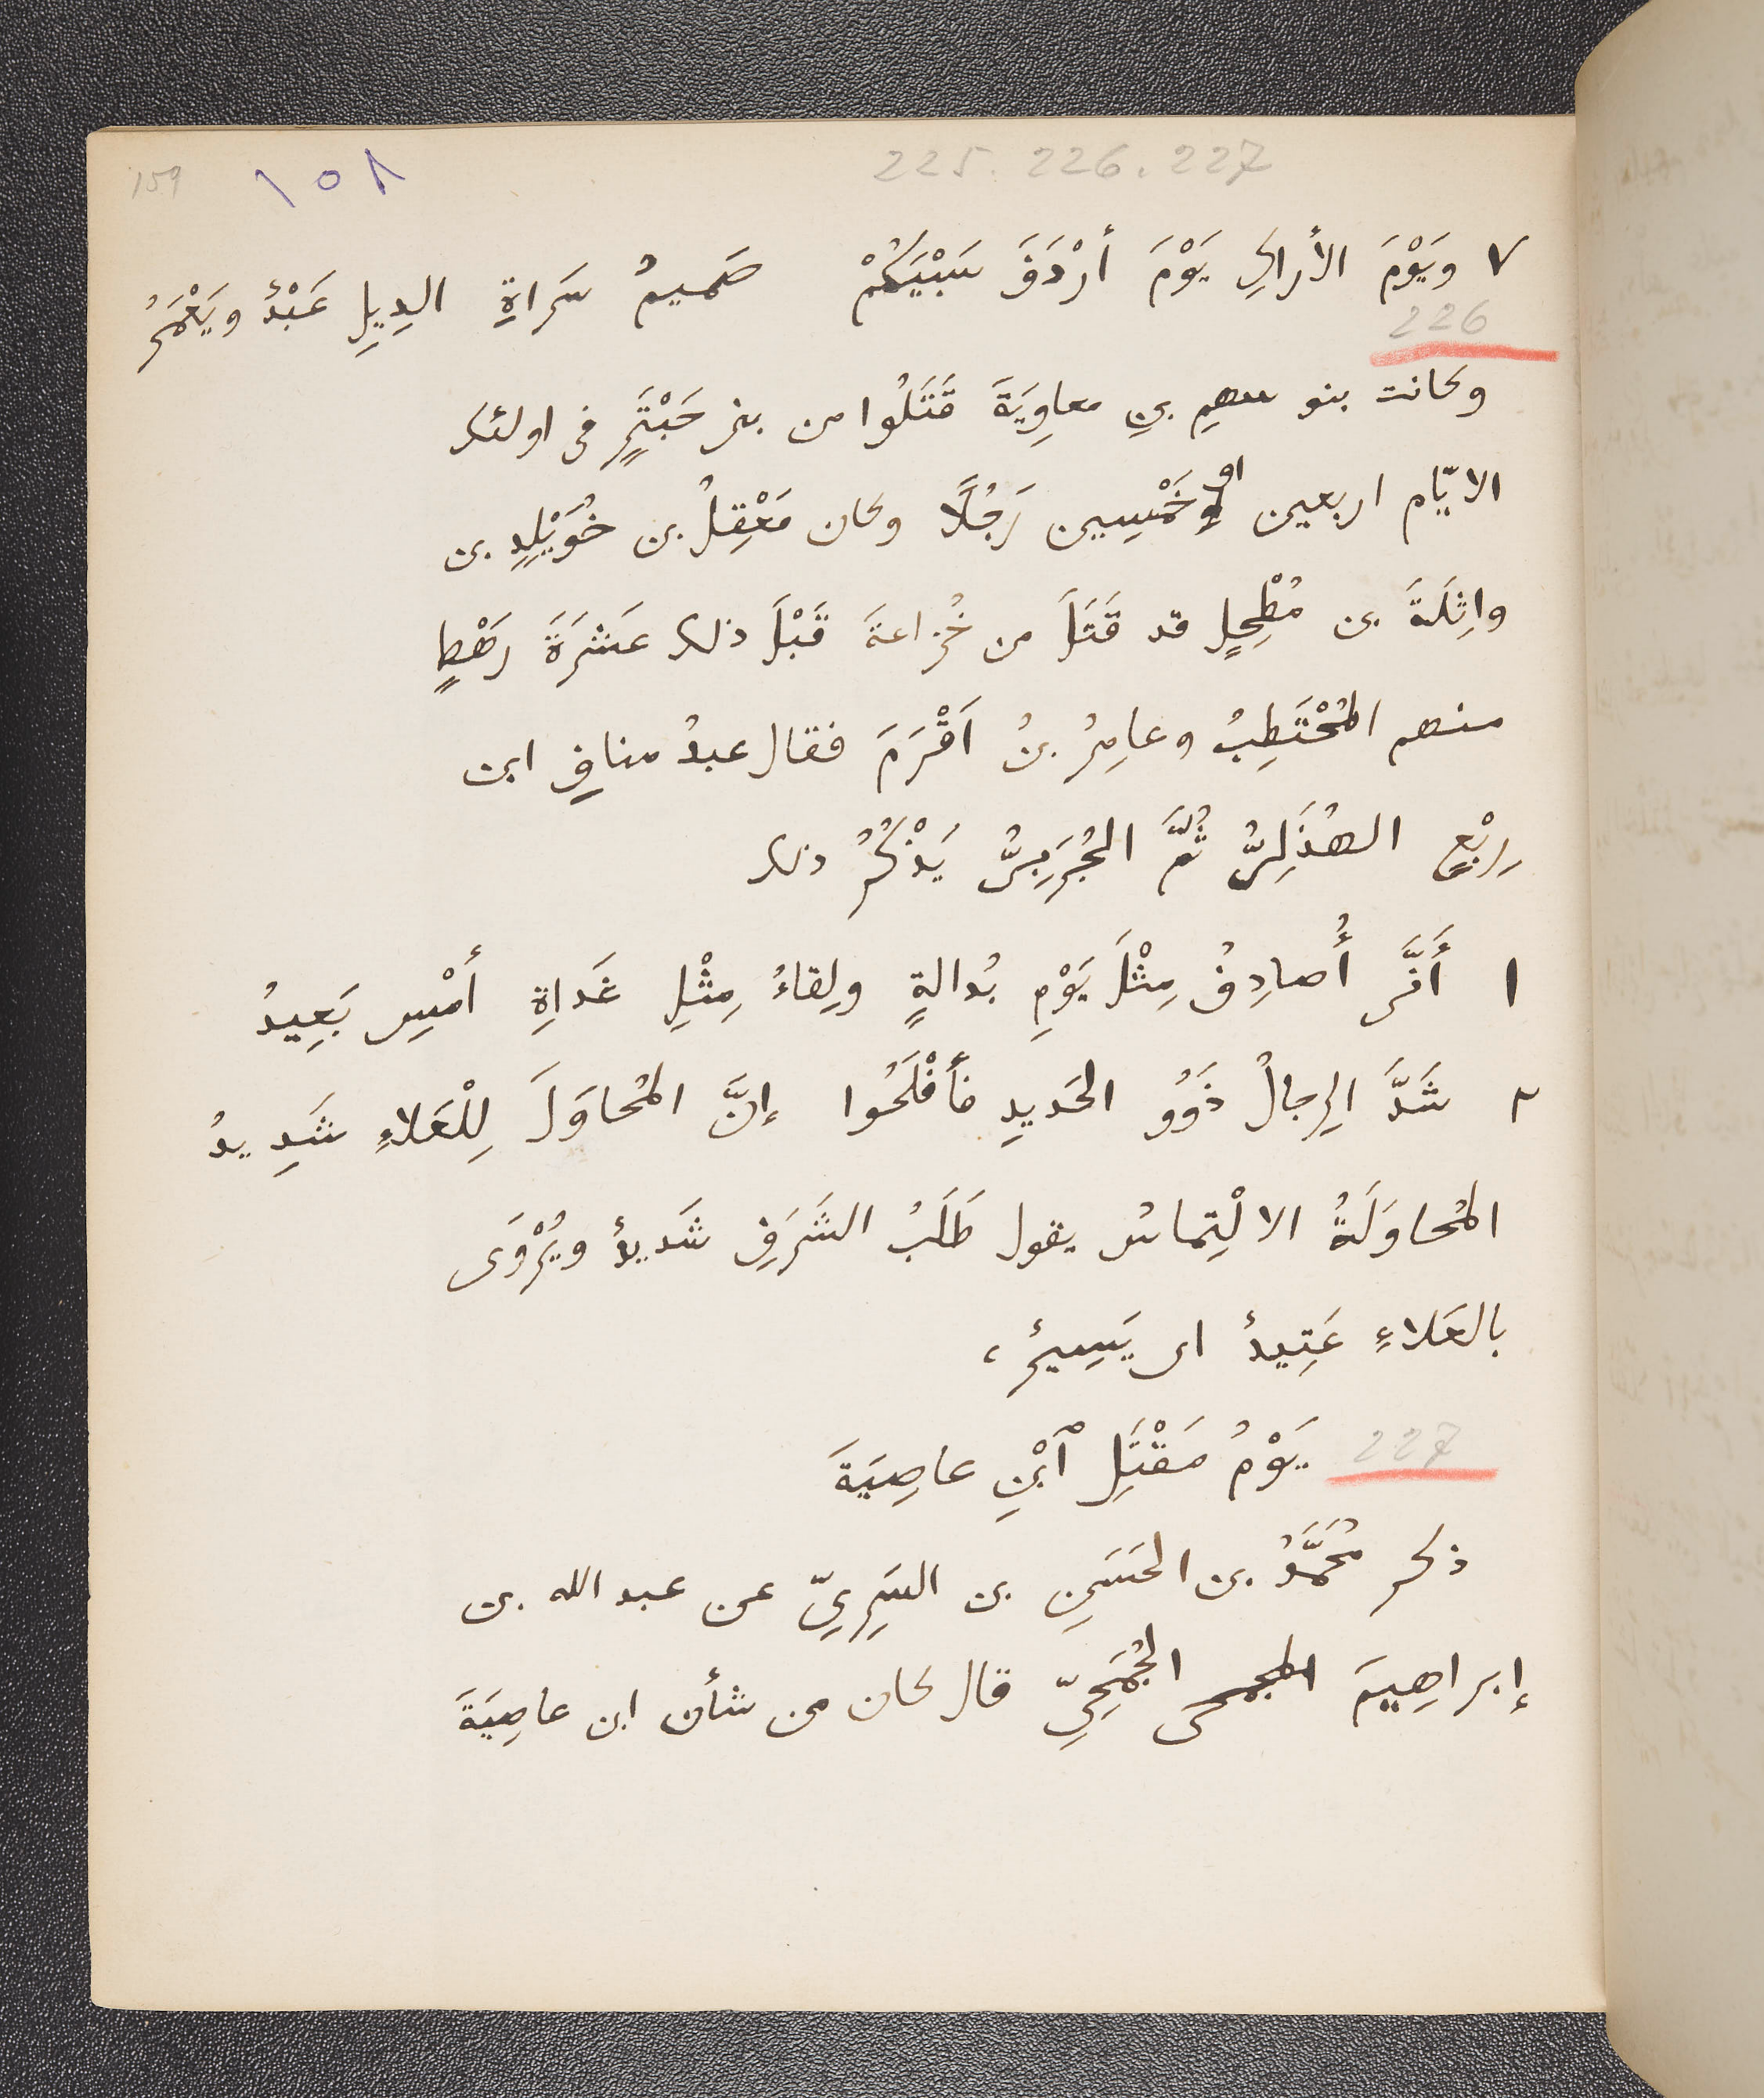 159 ١٥٨ 225. 226. 227
٧ وَيَوْمَ الأَراكِ يَوْمَ أرْدَفَ سَبْيَكُمْ صَمِيمُ سَراةِ الدِيلِ عَبْدٌ ويَعْمَرُ
226
وكانت بنو سهمِ بنِ معاوِيَةَ قَتَلُوا من بنى حَبْتَرٍ فى اولئك
الايّام اربعين او خَمْسِين رَجُلًا وكان مَعْقِلُ بن خُوَيْلِدِ بن
واثِلَةَ بن مُطْحِلٍ قد قَتَلَ من خُزاعةَ قَبْلَ ذلك عَشَرَةَ رَهْطٍ
منهم المُحْتَطِبُ وعامِرُ بنُ اَقْرَمَ فقال عبدُ منافِ ابن
رِبْعٍ الهُذَلِىُّ ثُمَّ الجُرَبِىُّ يَذْكُرُ ذلك
١ أَنَّى أُصادِفُ مِثْلَ يَوْمِ بُدالةٍ ولِقاءُ مِثْلِ غَداةِ أمْسِ بَعِيدُ
٢ شَدَّ الرِجالُ ذَوُو الحَديدِ فأَفْلَحُوا إنَّ المُحاوَلَ لِلْعَلاءِ شَدِيدُ
المُحاوَلَةُ الالْتِماسُ يقول طَلَبُ الشَرَفِ شَديدٌ ويُرْوَى
بالعَلاءِ عَتِيدٌ اى يَسِيرٌ،
227 يَوْمُ مَقْتَلِ ٱبْنِ عاصِيَةَ
ذكر مُحَمَّدُ بن الحَسَنِ بن السَرِىِّ عن عبد الله بن
إبراهِيمَ الجمحى الجُمَحِىِّ قال كان من شأن ابن عاصِيَةَ